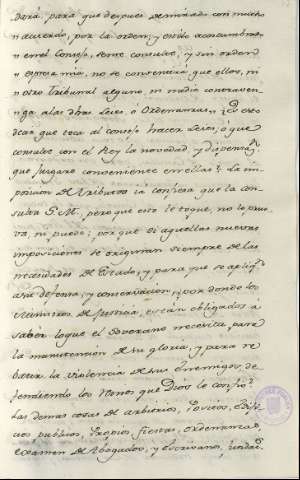 Dará, para que despues de mirado con mucho
acuerdo, por la orden, y estilo acostumbrado
en el Consejo, se me consulte, y sin orden
expresa mia, no se consentirá que ellos, ni
otro Tribunal alguno, ni nadie contraven-
ga a las dhas Leies, ó Ordenanzas,
decar que toca al consejo hacer Leies, ó que
consulte con el Rey la novedad y dispensas
que juzgare conveniente en ellas? La im-
posicion de tributos ia confiesa que la con-
sulta S. M. pero que esto le toque, no lo prue-
va, ni puede; por que si aquellas nuevas
imposiciones se originan siempre de las
necesidades de Estado, y para que se apliq.
a su defensa, y conservacion, por donde los
Ministros de Justicia, están obligados a
saber lo que el Soverano necesita para
la manutencion de su gloria, y para re-
batir la violencia de sus Enemigos, de-
fendiendo los Reinos que Dios le confió?
Las demas cosas de arbitrios, Positos, Edifi-
cios publicos, Propios, fiestas, ordenanzas,
examen de Abogados, y Escrivanos, fundaz.